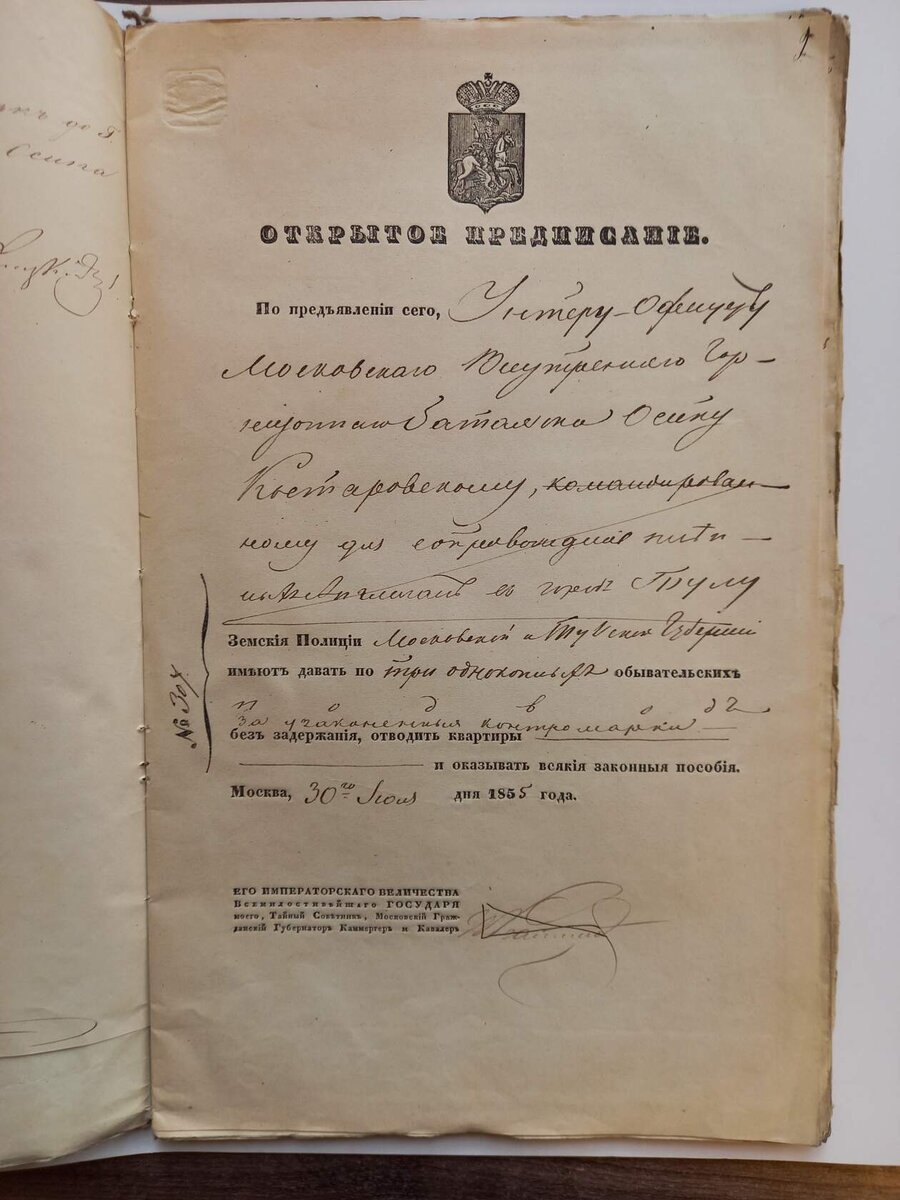 къ до
Осипа
1
ОТКРЫТОЕ ПРЕДПИСАНІЕ.
По предъявленіи сего, Унтеръ-Офицеру
Московскаго Внутренняго Гар-
низоннаго Баталіона Осипу
Костаровскому, командирован-
ному для сопровожденія
въ городъ Тулу
Земскія Полиціи Московской и Тульской Губерніи
имѣютъ давать по три одноконныхъ обывательскихъ
п о д в о д ы
за узаконенныя контромарки
безъ задержанія, отводить квартиры
и оказывать всякія законныя пособія.
Москва, 30го Іюня дня 1855 года.
№ 307
ЕГО ИМПЕРАТОРСКАГО ВЕЛИЧЕСТВА
Всемилостивѣйшаго ГОСУДАРЯ
моего, Тайный Совѣтникъ, Московскій Граж-
данскій Губернаторъ Каммергеръ и Кавалеръ